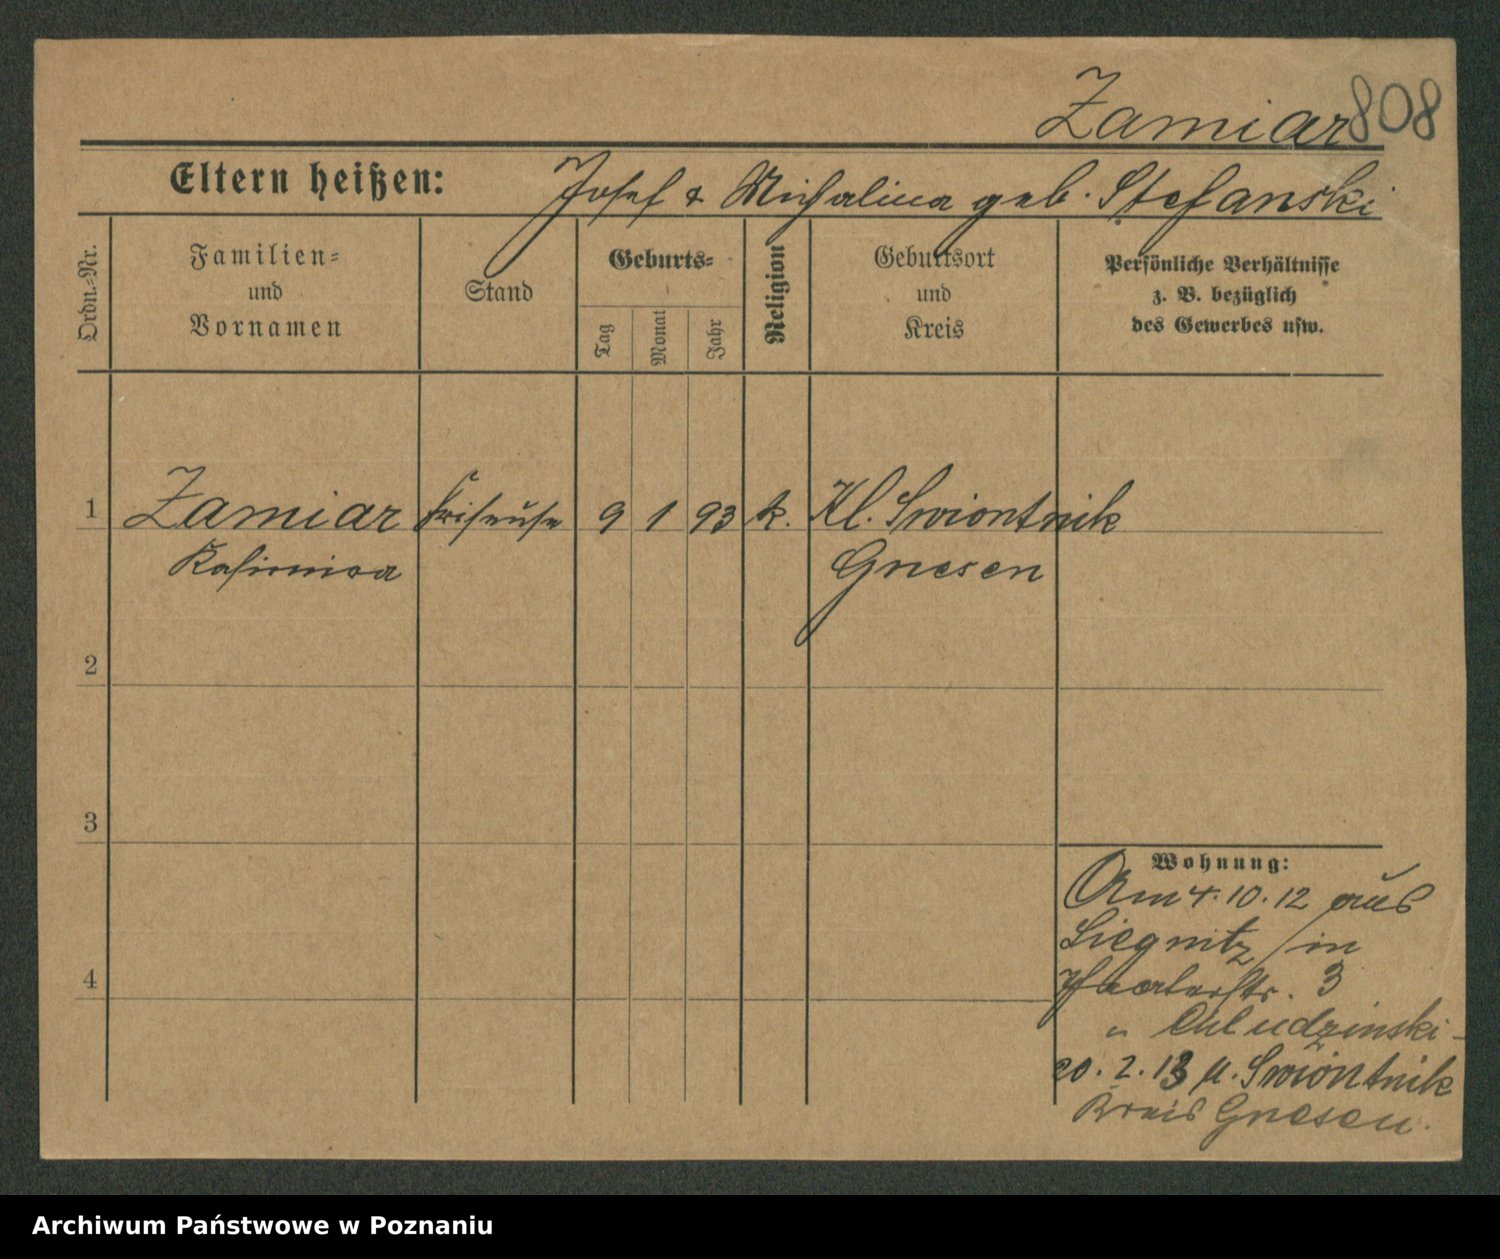 Zamiar 808
Eltern heißen: Josef & Michalina geb. Stefanski
Ordn.-Nr.
Familien-
und
Vornamen
Stand
Geburts-
Tag
Monat
Jahr
Religion
Geburtsort
und
Kreis
Persönliche Verhältnisse
z. B. bezüglich
des Gewerbes usw.
1 Zamiar Friseuse 9 1 93 k. Kl. Swiontnik
Kasimira Gnesen
2
3
4
Wohnung:
Am 4.10.12 aus
Liegnitz / in
3
" Chludzinski
20. 2. 13 n. Swiontnik
Kreis Gnesen.
Archiwum Państwowe w Poznaniu